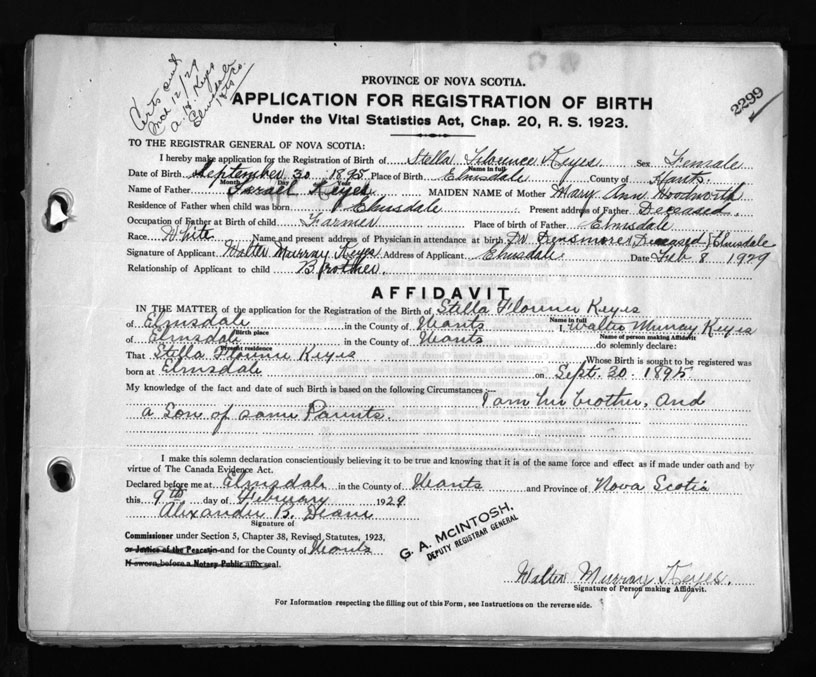 Certs sent
Mch 12/29
A. H. Keyes
Elmsdale
Hts Co.
2299
PROVINCE OF NOVA SCOTIA.
APPLICATION FOR REGISTRATION OF BIRTH
Under the Vital Statistics Act, Chap. 20, R. S. 1923.
TO THE REGISTRAR GENERAL OF NOVA SCOTIA:
I hereby make application for the Registration of Birth of Stella Florence Keyes Sex Female
Name in full
Date of Birth September 30 1895 Place of Birth Elmsdale County of Hants
Month Day Year
Name of Father Israel Keyes MAIDEN NAME of Mother Mary Ann Woodworth
Residence of Father when child was born Elmsdale Present address of Father Deceased.
Occupation of Father at Birth of child Farmer Place of birth of Father Elmsdale
Race White Name and present address of Physician in attendance at birth Dr Densmore, Deceased, Elmsdale
Signature of Applicant Walter Murray Keyes Address of Applicant Elmsdale Date Feb 8 1929
Relationship of Applicant to child Brother.
AFFIDAVIT
IN THE MATTER of the application for the Registration of the Birth of Stella Florence Keyes
Name in full
of Elmsdale in the County of Hants I, Walter Murray Keyes
Birth place Name of person making Affidavit
of Elmsdale in the County of Hants do solemnly declare:
Present residence
That Stella Florence Keyes Whose Birth is sought to be registered was
born at Elmsdale on Sept. 30. 1895
My knowledge of the fact and date of such Birth is based on the following Circumstances:— I am her brother, and
a Son of same Parents.
I make this solemn declaration conscientiously believing it to be true and knowing that it is of the same force and effect as if made under oath and by
virtue of The Canada Evidence Act.
Declared before me at Elmsdale in the County of Hants and Province of Nova Scotia
this 9th day of February 1929
Alexander B.
Signature of
Commissioner under Section 5, Chapter 38, Revised Statutes, 1923,
or Justice of the Peace in and for the County of Hants
If sworn before a Notary Public affix seal.
G. A. McINTOSH,
DEPUTY REGISTRAR GENERAL
Walter Murray Keyes.
Signature of Person making Affidavit.
For Information respecting the filling out of this Form, see Instructions on the reverse side.